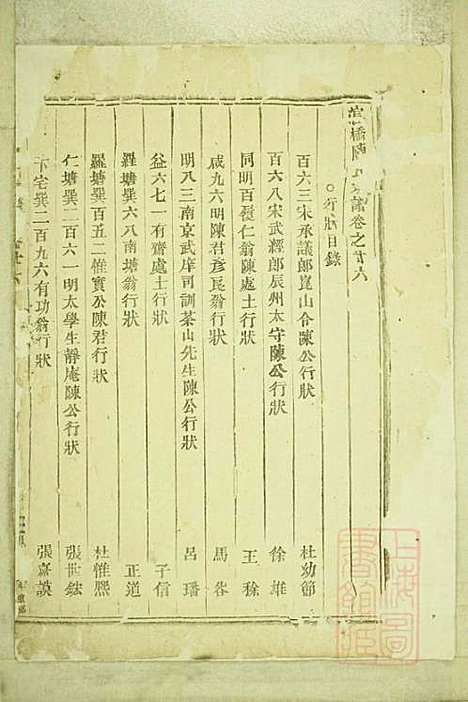 橋陳氏宗譜卷之廿六
○行狀目錄
百六三宋承議郎崑山令陳公行狀 杜幼節
百六八宋武經郎辰州太守陳公行狀 徐雄
同明百 仁翁陳處士行狀 王稌
咸九六明陳君彥民翁行狀 馬
明八三南京武庠司訓茶山先生陳公行狀 呂璠
益六七一有齋處士行狀 子信
羅塘巽六八南塘翁行狀 正道
羅塘巽百五二惟實公陳君行狀 杜惟熙
仁塘巽二百六一明太學生靜庵陳公行狀 張世
下宅巽二百九六有功翁行狀 張嘉謨
上海圖書館藏